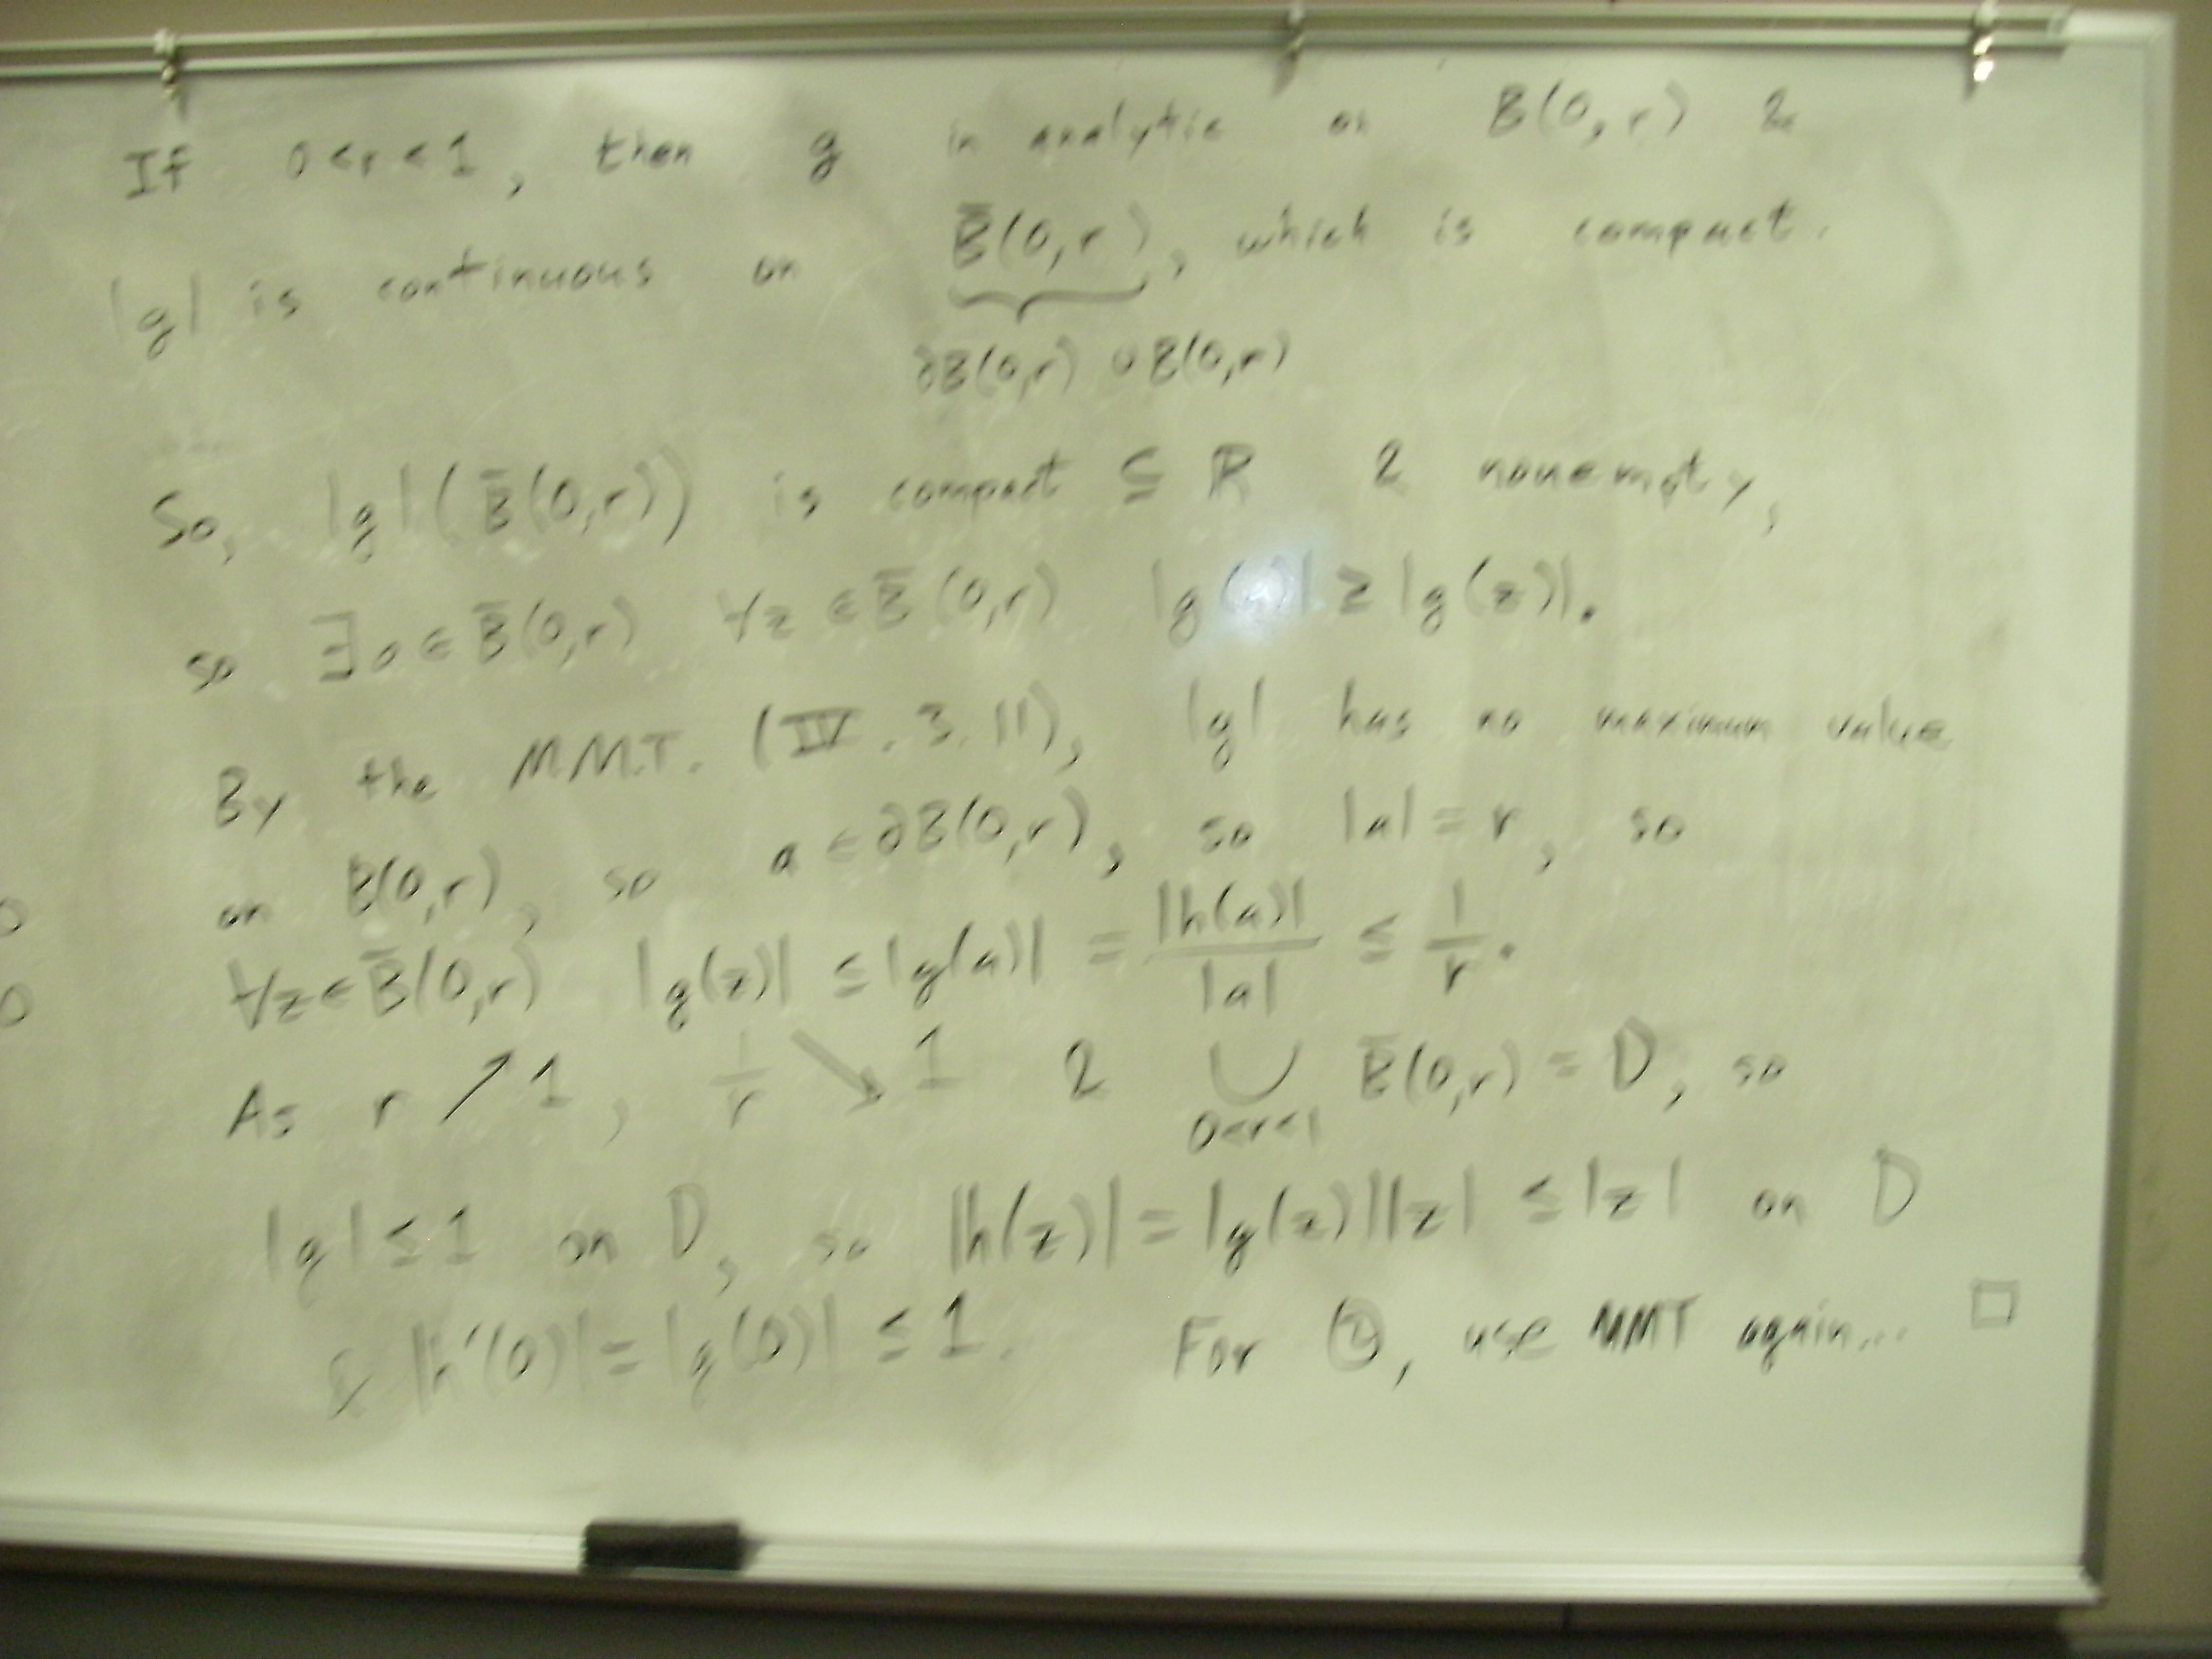 If 0<r<1, then g is analytic on B(0,r) &
|g| is continuous on B̄(0,r), which is compact.
∂B(0,r) ∪ B(0,r)
So, |g|(B̄(0,r)) is compact ⊆ ℝ & nonempty,
so ∃a∈B̄(0,r) ∀z∈B̄(0,r) |g(a)| ≥ |g(z)|.
By the M.M.T. (IV.3.11), |g| has no maximum value
on B(0,r), so a∈∂B(0,r), so |a|=r, so
∀z∈B̄(0,r) |g(z)| ≤ |g(a)| = |h(a)|/|a| ≤ 1/r.
As r↗1, 1/r ↘ 1 & ∪_{0<r<1} B̄(0,r) = D, so
|g|≤1 on D, so |h(z)| = |g(z)||z| ≤ |z| on D
& |h'(0)| = |g(0)| ≤ 1. For ②, use MMT again... □